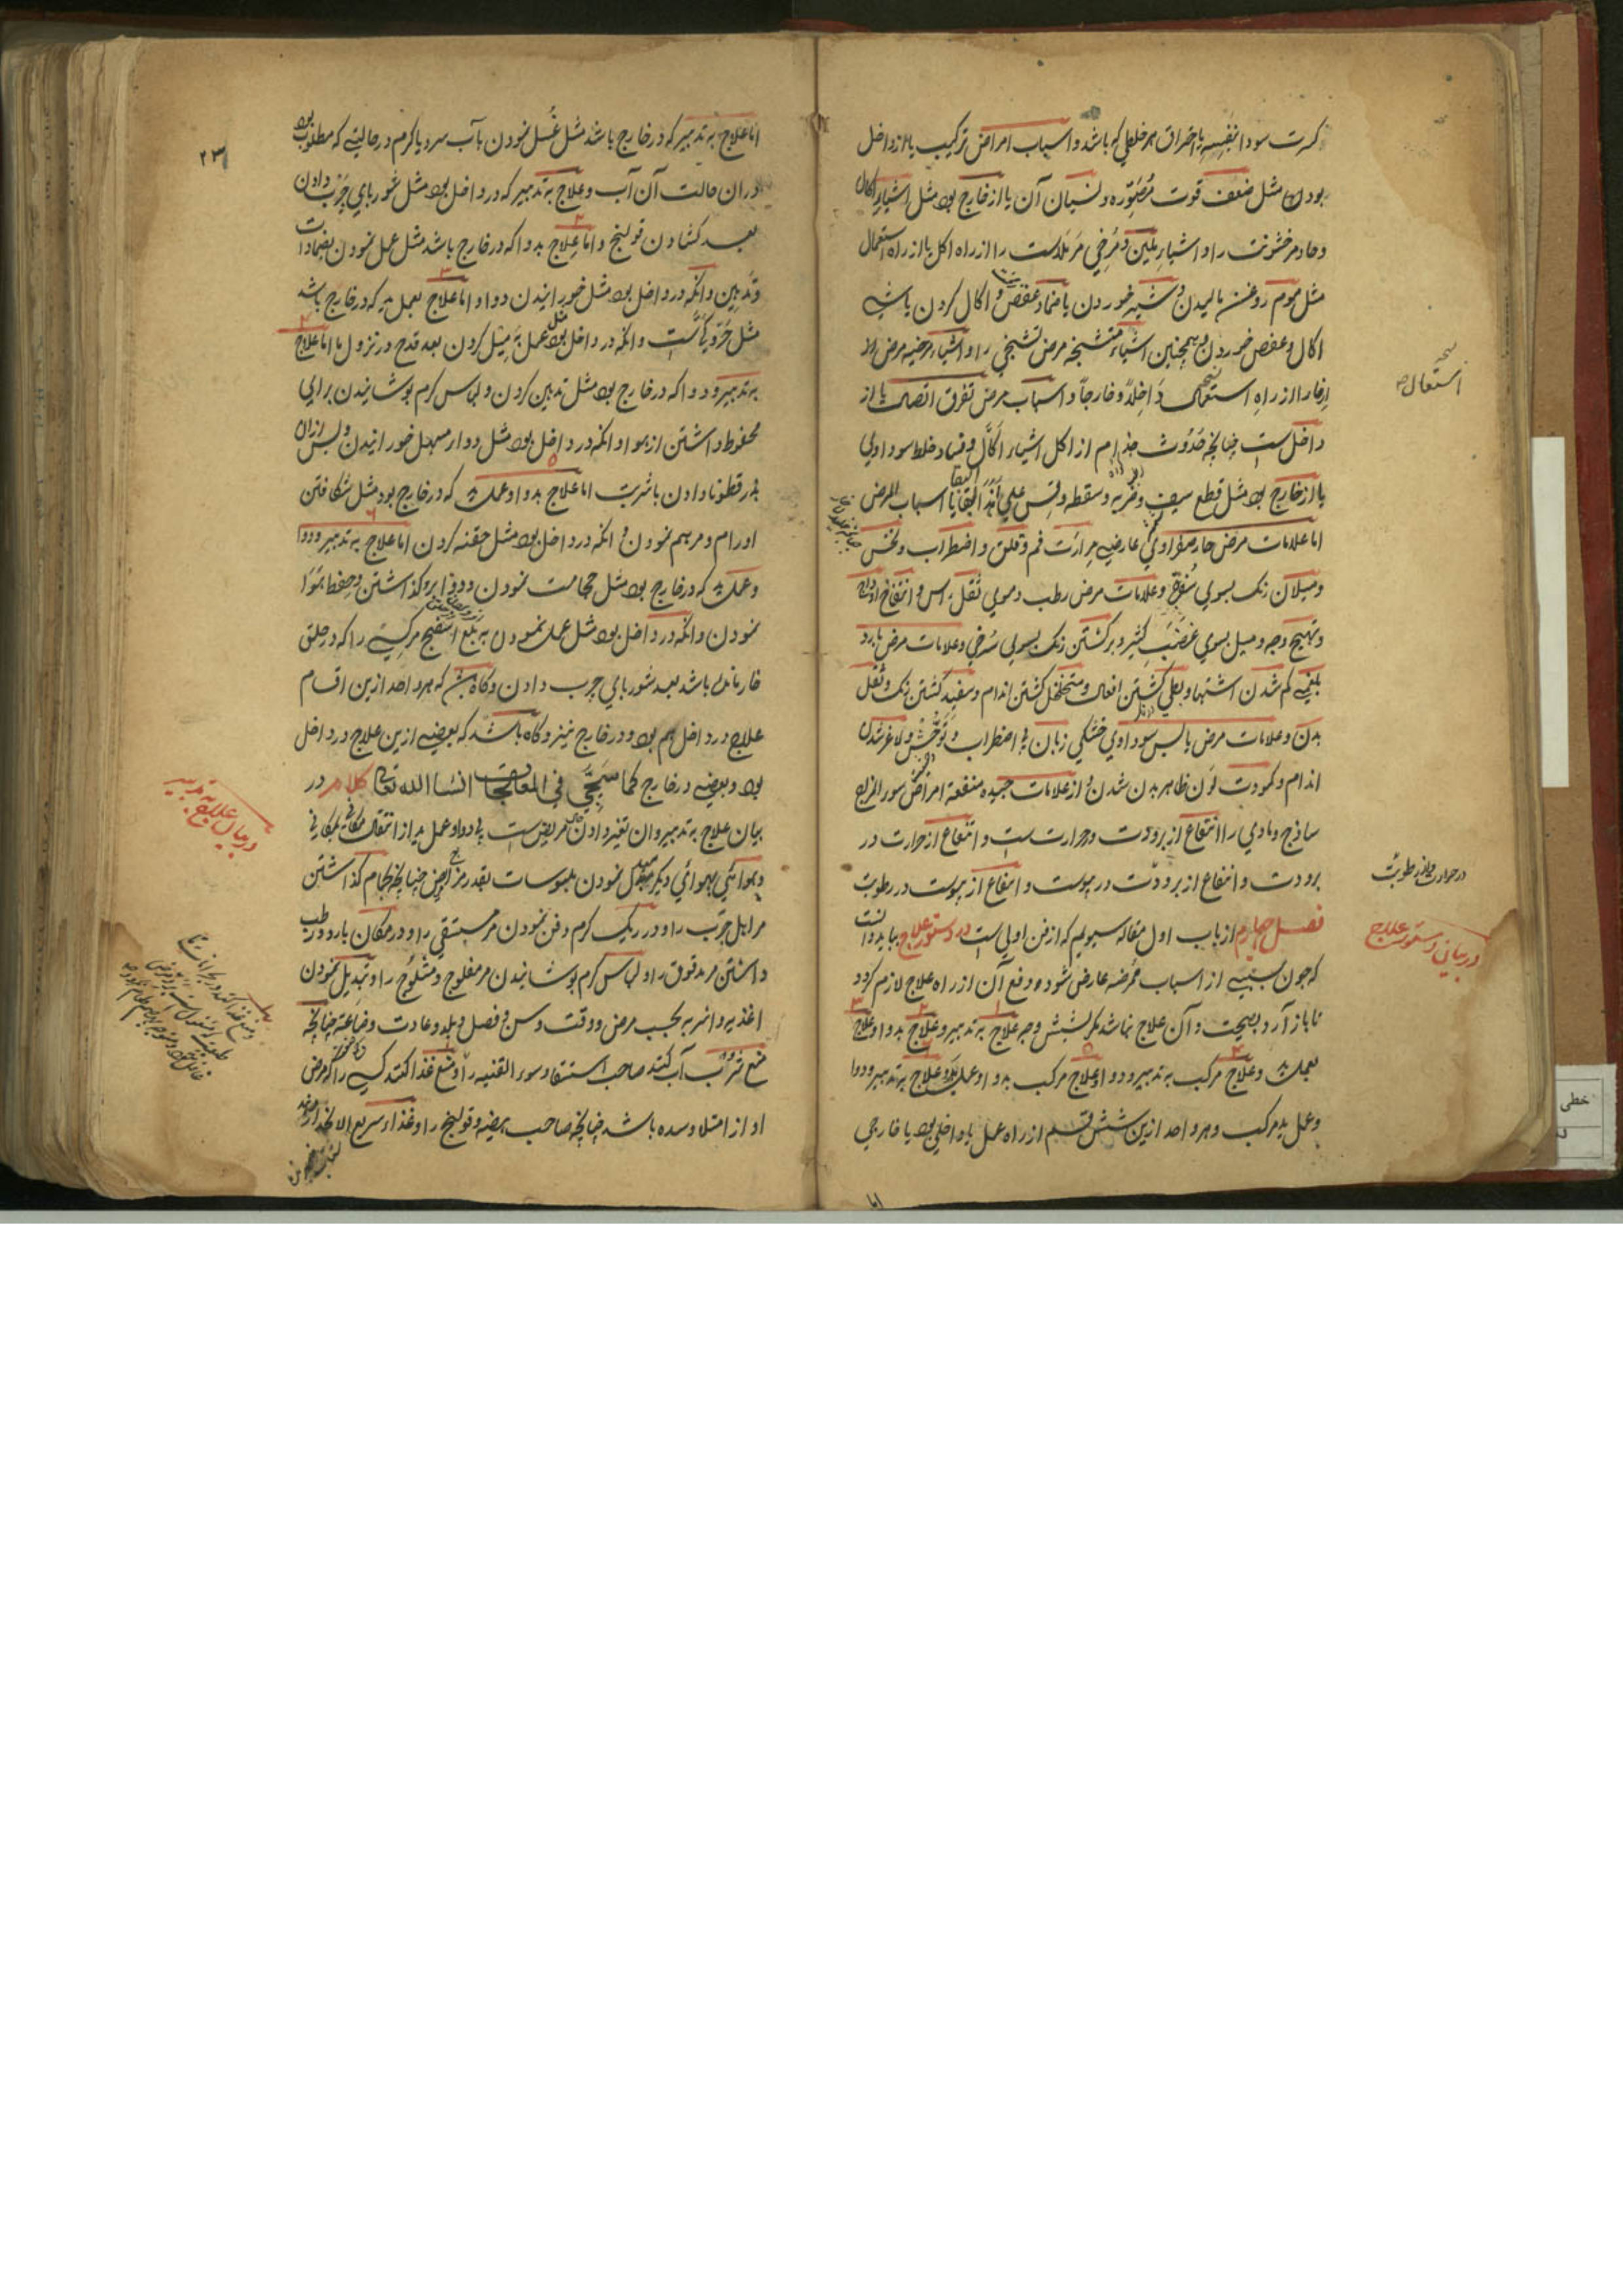 کثرت سودا بنفسه یا احراق هر خلطی که باشد و اسباب امراض ترکیب یا از داخل
بود مثل ضعف قوت مصوره و نسیان آن یا از خارج بود مثل اشیاء اکال
و حاد مر خشونت را و اشیاء ملین و مرخی مر ملاست را از راه اکل یا از راه استعمال
مثل موم روغن مالیدن و شیر خوردن یا ضماد عفص و اکال کردن یا شی
اکال و عفص خوردن و همچنین اشیاء متشنجه مرض تشنجی را و اشیاء مرخیه مرض
ارخا را از راه استعمال داخلاً و خارجاً و اسباب مرض تفرق اتصال یا از
داخل ست چنانچه حدوث جذام از اکل اشیاء اکال و فساد خلط سوداوی
یا از خارج بود مثل قطع سیف و ضربه و سقطه و قس علی هذا البقایا اسباب المرض
اما علامات مرض حار صفراوی عارضی مرارت فم و قلق و اضطراب و نخس
و میلان رنگ بسوی و علامات مرض رطب دموی ثقل راس و انتفاخ اوداج
و تهیج وجه و میل بسوی غضب کثیر و برگشتن رنگ بسوی سرخی و علامات مرض بارد
بلغمی کم شدن اشتها و بطی گشتن افعال و متخلخل گشتن اندام و سفید گشتن رنگ و ثقل
بدن و علامات مرض یابس سوداوی خشکی زبان و اضطراب و توحش و لاغر شدن
اندام و کمودت لون ظاهر بدن شدن و از علامات جیده منفعة امراض سوء المزاج
ساذج و مادی را انتفاع از برودت در حرارت ست و انتفاع از حرارت در
برودت و انتفاع از برودت در یبوست و انتفاع از یبوست در رطوبت
فصل چهارم از باب اول مقاله سیوم که از فن اولی است در دستور علاج بباید دانست
که چون سببی از اسباب ممرضه عارض شود دفع آن از راه علاج لازم گردد
تا باز آرد بصحت و آن علاج نباشد مگر بشش وجه علاج به تدبیر و علاج بدوا و علاج
بعمل ید و علاج مرکب به تدبیر و دوا و علاج مرکب بدوا و عمل ید و علاج به تدبیر و دوا
و عمل ید مرکب و هر واحد ازین شش قسم از راه عمل یا داخلی بود یا خارجی
اما
استعمال
در حرارت
در بیان دستور علاج
۲۳
اما علاج به تدبیر که در خارج باشد مثل غسل نمودن بآب سرد یا گرم در حالتی که مطلوب بود
دران حالت آن آب و علاج به تدبیر که در داخل بود مثل شوربای چرب دادن
بعد گشادن قولنج و اما علاج بدوا که در خارج باشد مثل عمل نمودن بضمادات
و تدهین و آنکه در داخل بود مثل خورانیدن دوا و اما علاج بعمل ید که در خارج باشد
مثل و آنکه در داخل بود مثل عمل به میل کردن بعد قدح در نزول ما اما علاج
به تدبیر و دوا که در خارج بود مثل تدهین کردن و لباس گرم پوشانیدن برای
محفوظ داشتن از هوا و آنکه در داخل بود مثل دواء مسهل خورانیدن و پس ازان
بذر قطونا دادن باشربت اما علاج بدوا و عمل ید که در خارج بود مثل شگافتن
اورام و مرهم نمودن و آنکه در داخل بود مثل حقنه کردن اما علاج به تدبیر و دوا
و عمل ید که در خارج بود مثل حجامت نمودن و دوا برو گذاشتن و حفظ هوا
نمودن و آنکه در داخل بود مثل عمل نمودن به بلع اسفنج مر کسی را که در حلق
خار مانده باشد بعد شوربای چرب دادن و گاه باشد که هر واحد ازین اقسام
علاج در داخل هم بود و در خارج نیز و گاه باشد که بعضی ازین علاج در داخل
بود و بعضی در خارج کما سیجی فی المعالجات انشا الله تعالی کلام در
بیان علاج به تدبیر و آن تغیر دادن مریض ست بی دوا و عمل ید از انتقال مکانی بمکانی
و هوائی بهوائی دیگر و نمودن ملبوسات بقدر مزاج مریض چنانچه بحمام گذاشتن
مر اهل جرب را و در ریگ گرم دفن نمودن مر مستسقی را و در مکان بارد و رطب
داشتن مر مدقوق را و لباس گرم پوشانیدن مر مفلوج و مثلوج را و تبدیل نمودن
اغذیه و اشربه بحسب مرض و وقت و سن و فصل و بلد و عادت و صناعة چنانچه
منع شرب آب کنند صاحب استسقا و سوء القنیه را و منع غذا کنند کسی را که مرض
او از امتلا و سده باشد چنانچه صاحب هیضه و قولنج را و غذاء سریع الانحدار
در بیان علاج به تدبیر